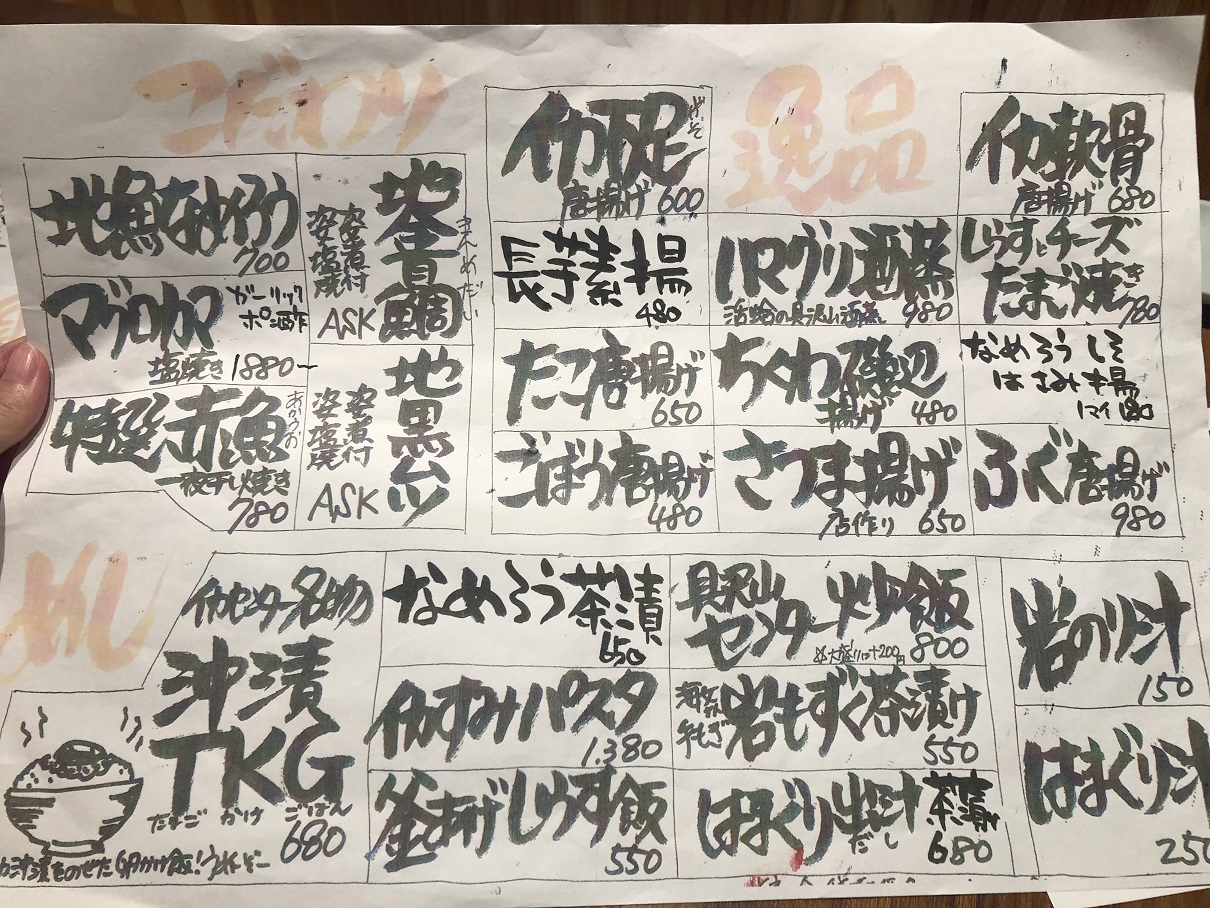 こだわり
地魚なめろう
700
マグロカマ
ガーリック
ポン酢
塩焼き 1880〜
特選赤魚
あかうお
一夜干し焼き
780
地金目鯛
きんめだい
姿煮付
姿塩焼
ASK
地黒ムツ
姿煮付
姿塩焼
ASK
逸品
イカ下足
げそ
唐揚げ 600
長芋素揚
480
たこ唐揚げ
650
ごぼう唐揚げ
480
ハマグリ酒蒸
活蛤の具沢山酒蒸し 980
ちくわ磯辺
揚げ 480
さつま揚げ
店作り 650
イカ軟骨
唐揚げ 680
しらすとチーズ
たまご焼き
780
なめろうしそ
はさみ揚
1マイ 180
ふぐ唐揚げ
980
めし
イカセンター名物
沖漬
TKG
たまご かけ ごはん
680
なめろう茶漬
650
イカすみパスタ
1.380
釜あげしらす飯
550
具沢山
センター炒飯
大盛りは+200円
800
岩もずく茶漬け
550
はまぐり出汁茶漬
だし
680
岩のり汁
150
はまぐり汁
250